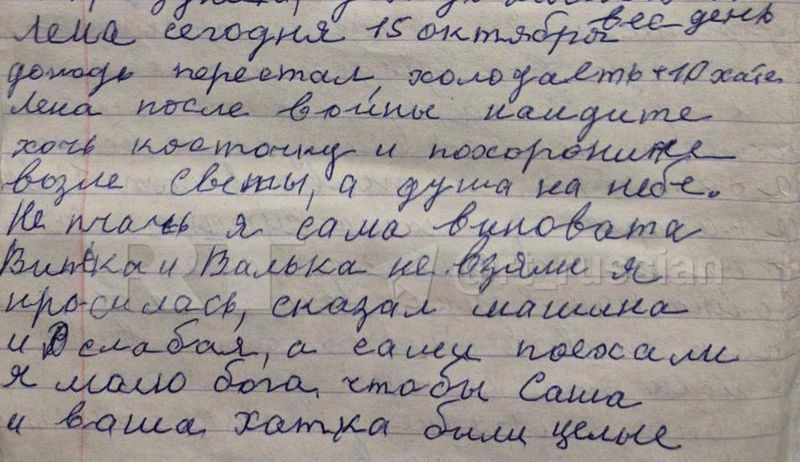 Лена сегодня 15 октября вес день
дождь перестал, холодаеть +10 хате
Лена после войны наидите
хочь косточку и похороните
возле Светы, а душа на небе.
Не плачь я сама виновата
Витька и Валька не взяли я
просилась, сказал машина
и слабая, а сами поехали
Я молю бога, чтобы Саша
и ваша хатка били целые